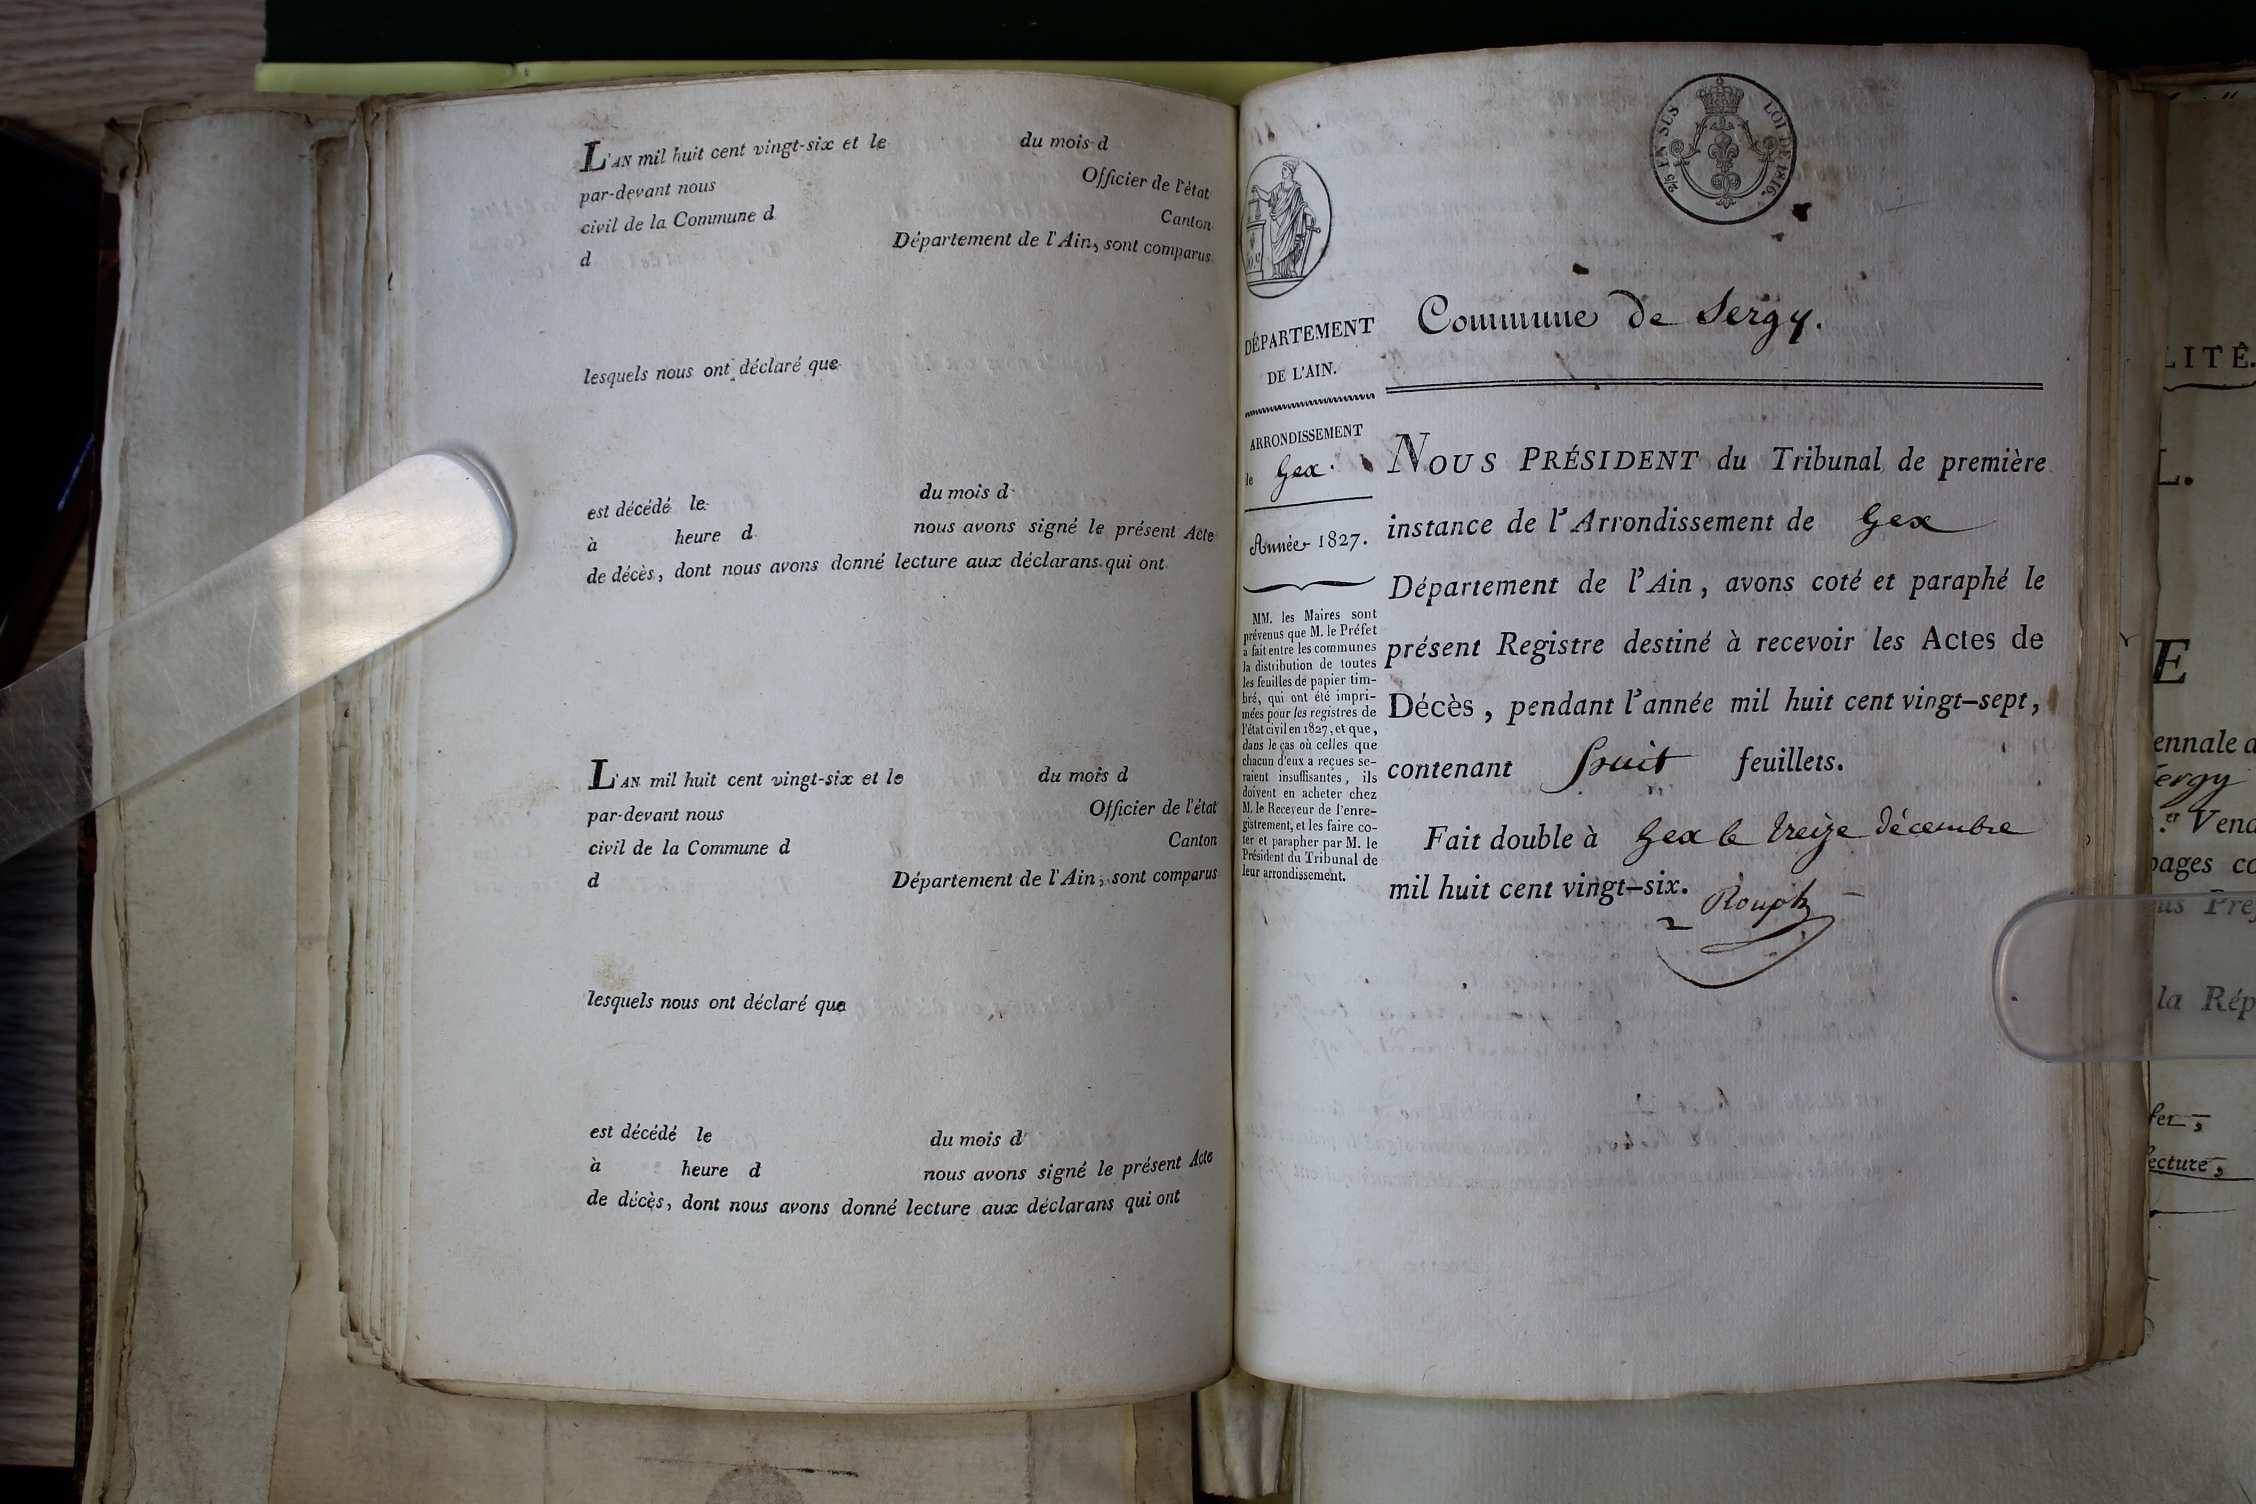 L'AN mil huit cent vingt-six et le du mois d
par-devant nous Officier de l'état
civil de la Commune d Canton
d Département de l'Ain, sont comparus
lesquels nous ont déclaré que
est décédé le du mois d
à heure d nous avons signé le présent Acte
de décès, dont nous avons donné lecture aux déclarans qui ont
L'AN mil huit cent vingt-six et le du mois d
par-devant nous Officier de l'état
civil de la Commune d Canton
d Département de l'Ain, sont comparus
lesquels nous ont déclaré que
est décédé le du mois d
à heure d nous avons signé le présent Acte
de décès, dont nous avons donné lecture aux déclarans qui ont
EN SUS LOI DE 1816.
DÉPARTEMENT
DE L'AIN.
ARRONDISSEMENT
de Gex.
Année 1827.
MM. les Maires sont
prévenus que M. le Préfet
a fait entre les communes
la distribution de toutes
les feuilles de papier tim-
bré, qui ont été impri-
mées pour les registres de
l'état civil en 1827, et que,
dans le cas où celles que
chacun d'eux a reçues se-
raient insuffisantes, ils
doivent en acheter chez
M. le Receveur de l'enre-
gistrement, et les faire co-
ter et parapher par M. le
Président du Tribunal de
leur arrondissement.
Commune de Sergy.
NOUS PRÉSIDENT du Tribunal de première
instance de l'Arrondissement de Gex
Département de l'Ain, avons coté et paraphé le
présent Registre destiné à recevoir les Actes de
Décès, pendant l'année mil huit cent vingt-sept,
contenant huit feuillets.
Fait double à Gex le treize décembre
mil huit cent vingt-six.
LITÉ.
L.
E
ennale d
ergy
Vend
pages co
us Pref
la Rép
ecture,